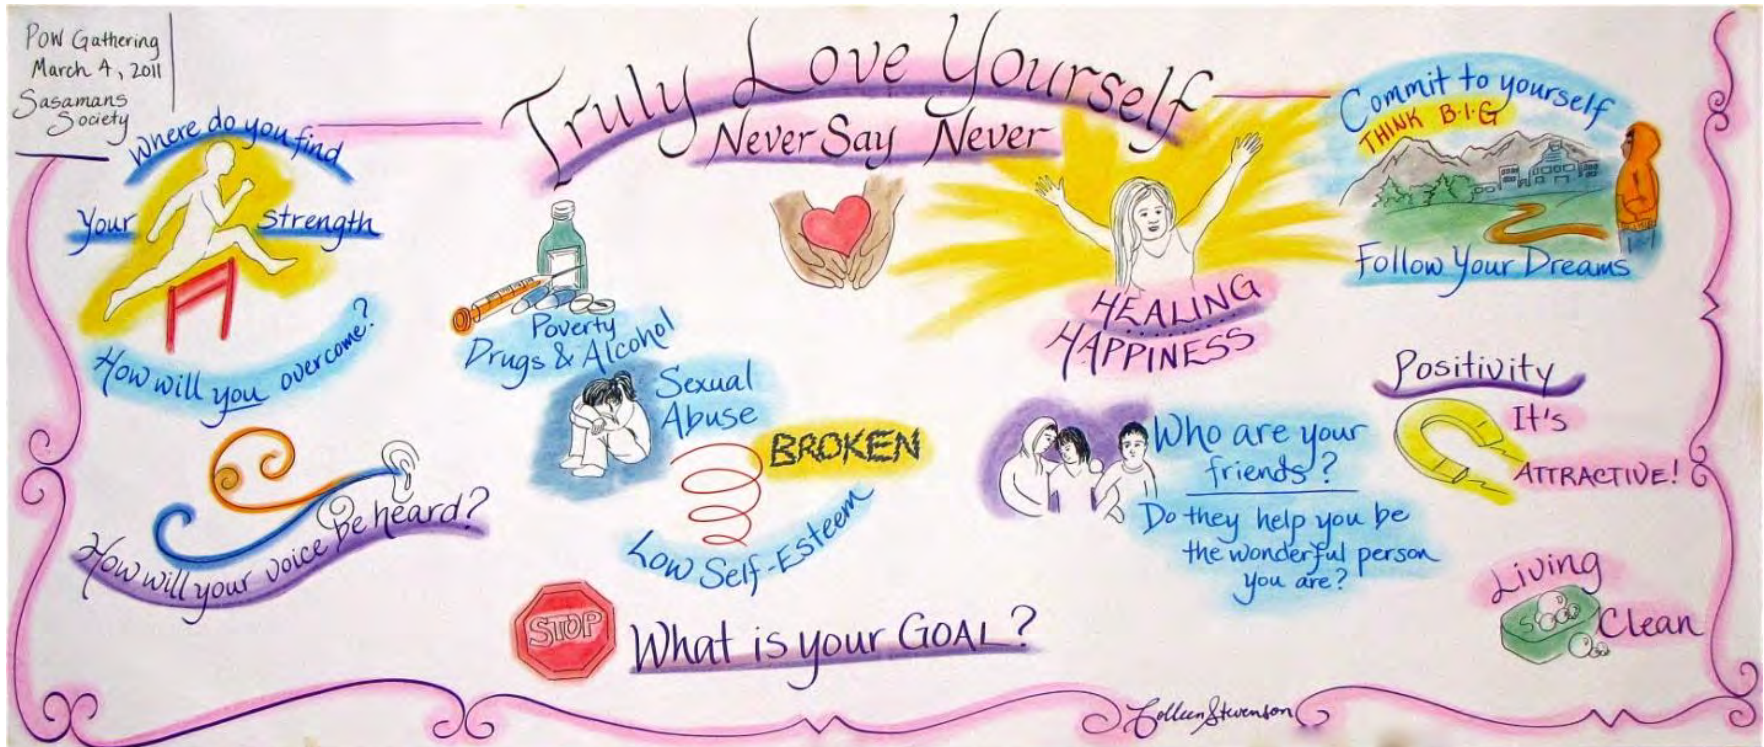 POW Gathering
March 4, 2011
Sasamans
Society
Truly Love Yourself
Never Say Never
Where do you find
Your strength
How will you overcome?
How will your voice be heard?
Poverty
Drugs & Alcohol
Sexual
Abuse
BROKEN
Low Self-Esteem
STOP
What is your GOAL?
HEALING
HAPPINESS
Who are your
friends?
Do they help you be
the wonderful person
you are?
Commit to yourself
THINK B.I.G
Follow Your Dreams
Positivity
It's
ATTRACTIVE!
Living
Clean
Colleen Stevenson